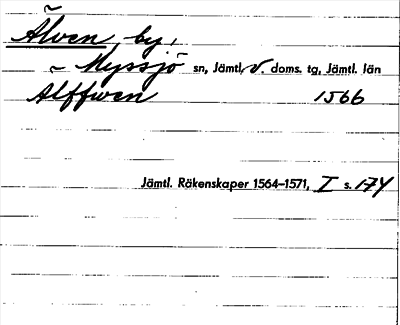 Älven, by,
Myssjö sn, Jämtl. V. doms. tg, Jämtl. län
Älffwen 1566
Jämtl. Räkenskaper 1564–1571, I s. 174